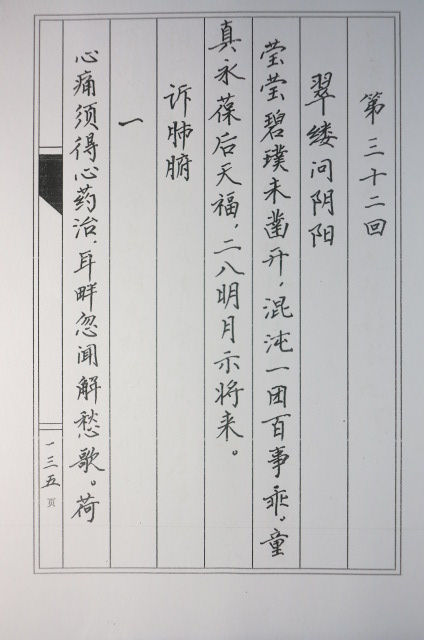 第三十二回
翠缕问阴阳
莹莹碧璞未凿开，混沌一团百事乖。童
真永葆后天福，二八明月示将来。
诉肺腑
一
心痛须得心药治，耳畔忽闻解愁歌。荷
一三五页